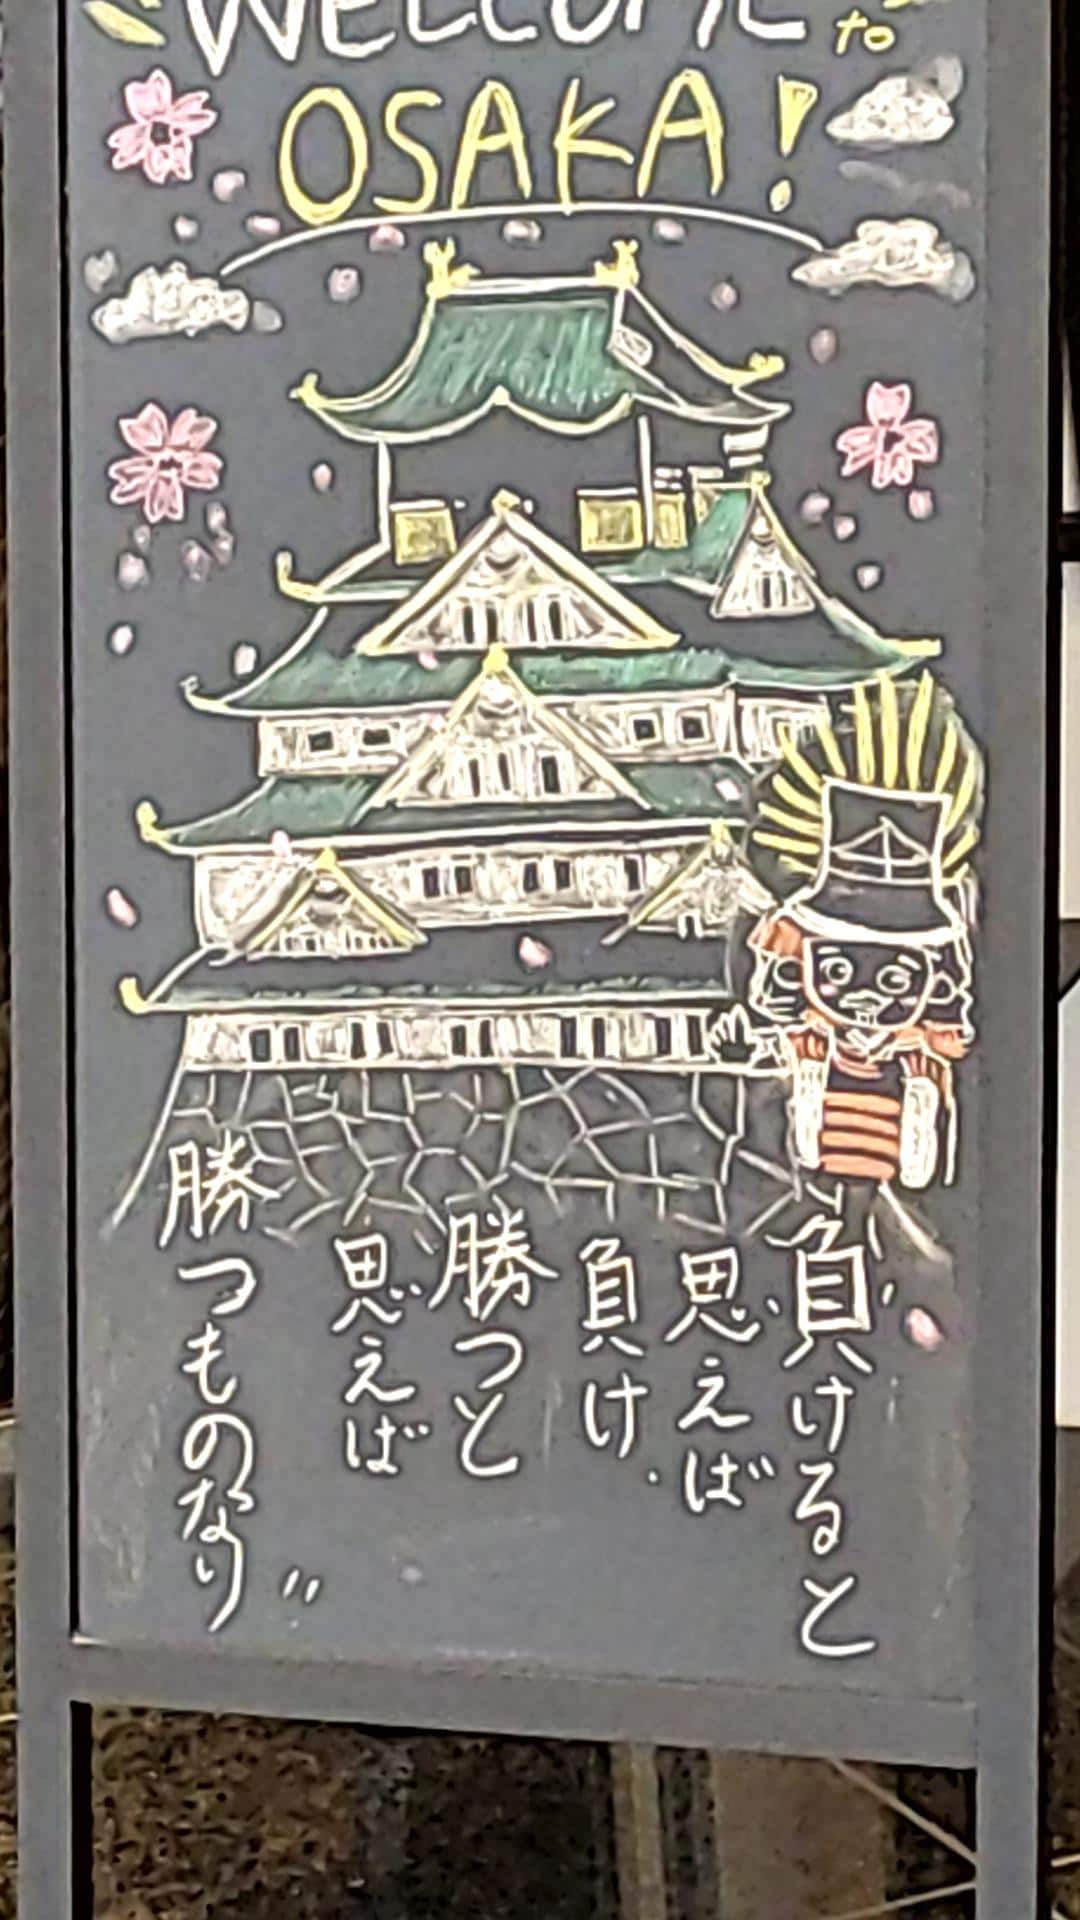 WELCOME to
OSAKA!
"負けると
思えば
負け.
勝つと
思えば
勝つものなり"